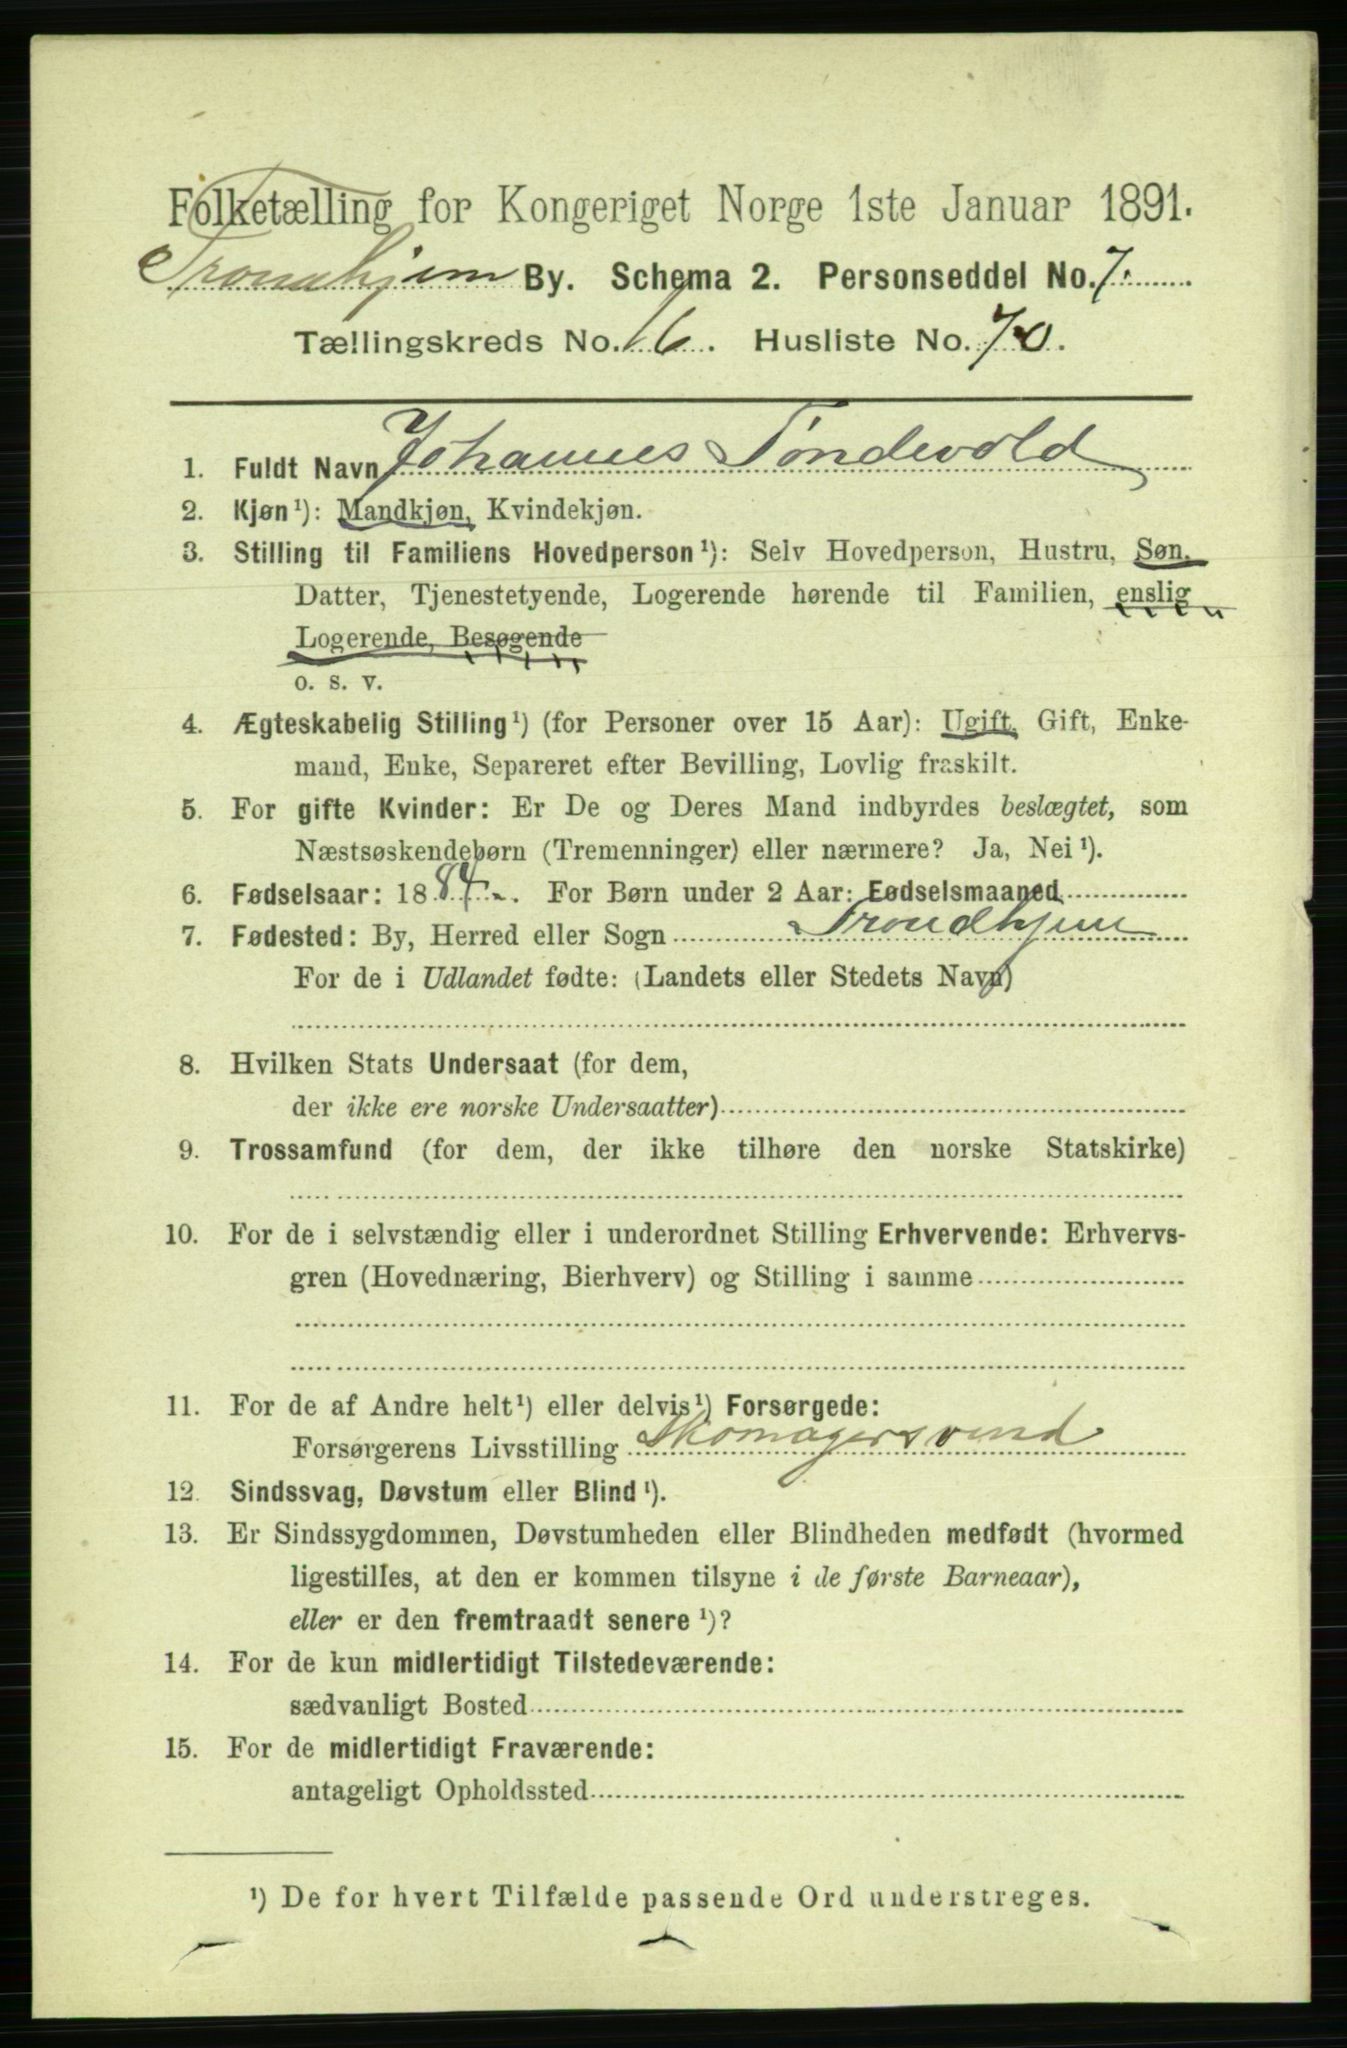 Folketælling for Kongeriget Norge 1ste Januar 1891.
Trondhjem By. Schema 2. Personseddel No. 7.
Tællingskreds No. 16. Husliste No. 70.
1. Fuldt Navn Johannes Tøndevold
2. Kjøn¹): Mandkjøn, Kvindekjøn.
3. Stilling til Familiens Hovedperson¹): Selv Hovedperson, Hustru, Søn,
Datter, Tjenestetyende, Logerende hørende til Familien, enslig
Logerende, Besøgende
o. s. v.
4. Ægteskabelig Stilling¹) (for Personer over 15 Aar): Ugift, Gift, Enke-
mand, Enke, Separeret efter Bevilling, Lovlig fraskilt.
5. For gifte Kvinder: Er De og Deres Mand indbyrdes beslægtet, som
Næstsøskendebørn (Tremenninger) eller nærmere? Ja, Nei¹).
6. Fødselsaar: 1884. For Børn under 2 Aar: Fødselsmaaned
7. Fødested: By, Herred eller Sogn Trondhjem
For de i Udlandet fødte: (Landets eller Stedets Navn)
8. Hvilken Stats Undersaat (for dem,
der ikke ere norske Undersaatter)
9. Trossamfund (for dem, der ikke tilhøre den norske Statskirke)
10. For de i selvstændig eller i underordnet Stilling Erhvervende: Erhvervs-
gren (Hovednæring, Bierhverv) og Stilling i samme
11. For de af Andre helt¹) eller delvis¹) Forsørgede:
Forsørgerens Livsstilling Skomagersvend
12. Sindssvag, Døvstum eller Blind¹).
13. Er Sindssygdommen, Døvstumheden eller Blindheden medfødt (hvormed
ligestilles, at den er kommen tilsyne i de første Barneaar),
eller er den fremtraadt senere¹)?
14. For de kun midlertidigt Tilstedeværende:
sædvanligt Bosted
15. For de midlertidigt Fraværende:
antageligt Opholdssted
¹) De for hvert Tilfælde passende Ord understreges.